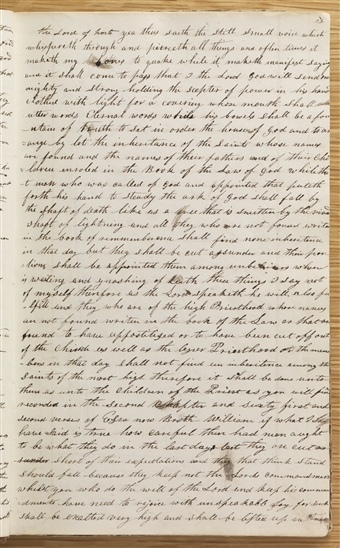 3
the Lord of hosts yea thus saith the still small voice which
whispereth through and pierceth all things and often times it
maketh my bones to quake while it maketh manifest saying
and it shall come to pass that I the Lord God will send one
mighty and strong holding the scepter of power in his hand
clothed with light for a covering whose mouth shall
utter words Eternal words while his bowels shall be a foun
tain of truth to set in order the house of God and to arr
ange by lot the inheritance of the Saints whose names
are found and the names of their fathers and of their Chi
ldren enroled in the Book of the Law of God while th
t man who was called of God and appointed that puteth
forth his hand to steady the ark of God shall fall by
the shaft of death like as a tree that is smitten by the vivid
shaft of lightning and all they who are not found writen
in the book of remmembrance shall find none inheritence
in that day but they shall be cut assunder and their por
tion shall be appointed them among unbelievers where
is wailing and gnashing of teeth these things I say not
of myself therefore as the Lord speaketh he will also ful
fill and they who are of the high Priesthood whose names
are not found writen in the book of the Law or that are
found to have appostitised or to have been cut off out
of the Church as well as the leser Priesthood or the mem
bers in that day shall not find an inheritence among the
saints of the most high therefore it shall be done unto
them as unto the Children of the Priest as you will find
recorded in the second Chapter and sixty first and
second verses of Ezra now Broth William if what I
have said is true how careful then had men aught
to be what they do in the last days lest they are cut as
short of their expectations and they that think stand
should fall because they keep not the Lords commandments
whilst you who do the will of the Lord and keep his comman
dments have need to rejoice with unspeakable joy for such
shall be exalted very high and shall be lifted up in